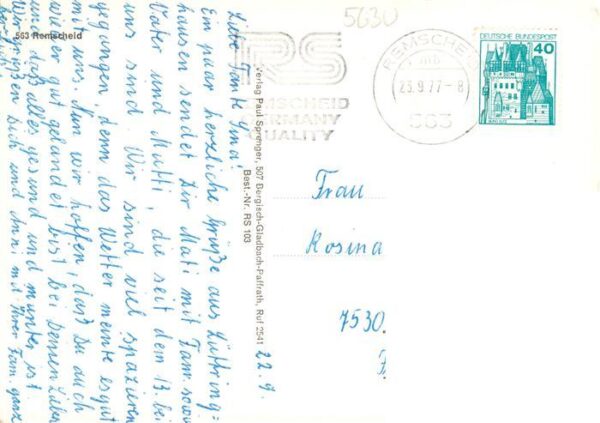 5630
563 Remscheid
RS
REMSCHEID
GERMANY
QUALITY
REMSCHEID
23.9.77-8
563
DEUTSCHE BUNDESPOST
40
Liebe Tante
Ein paar herzliche Grüße aus Lüttring=
hausen sendet Dir Mati mit Fam. sowie
Vater und Mutti, die seit dem 13. bei
uns sind. Wir sind viel spazieren
gegangen, denn das Wetter meinte es gut
mit uns. Nun wir hoffen, daß Du auch
wieder gut gelandet bist bei Deinen Lieben
und daß alles gesund und munter ist.
Wir grüßen Dich und mit Ihrer Fam. ganz
herzlich
22.9.
Verlag Paul Sprenger, 507 Bergisch-Gladbach-Paffrath, Ruf 2541
Best.-Nr. RS 103
Frau
Rosina
7530